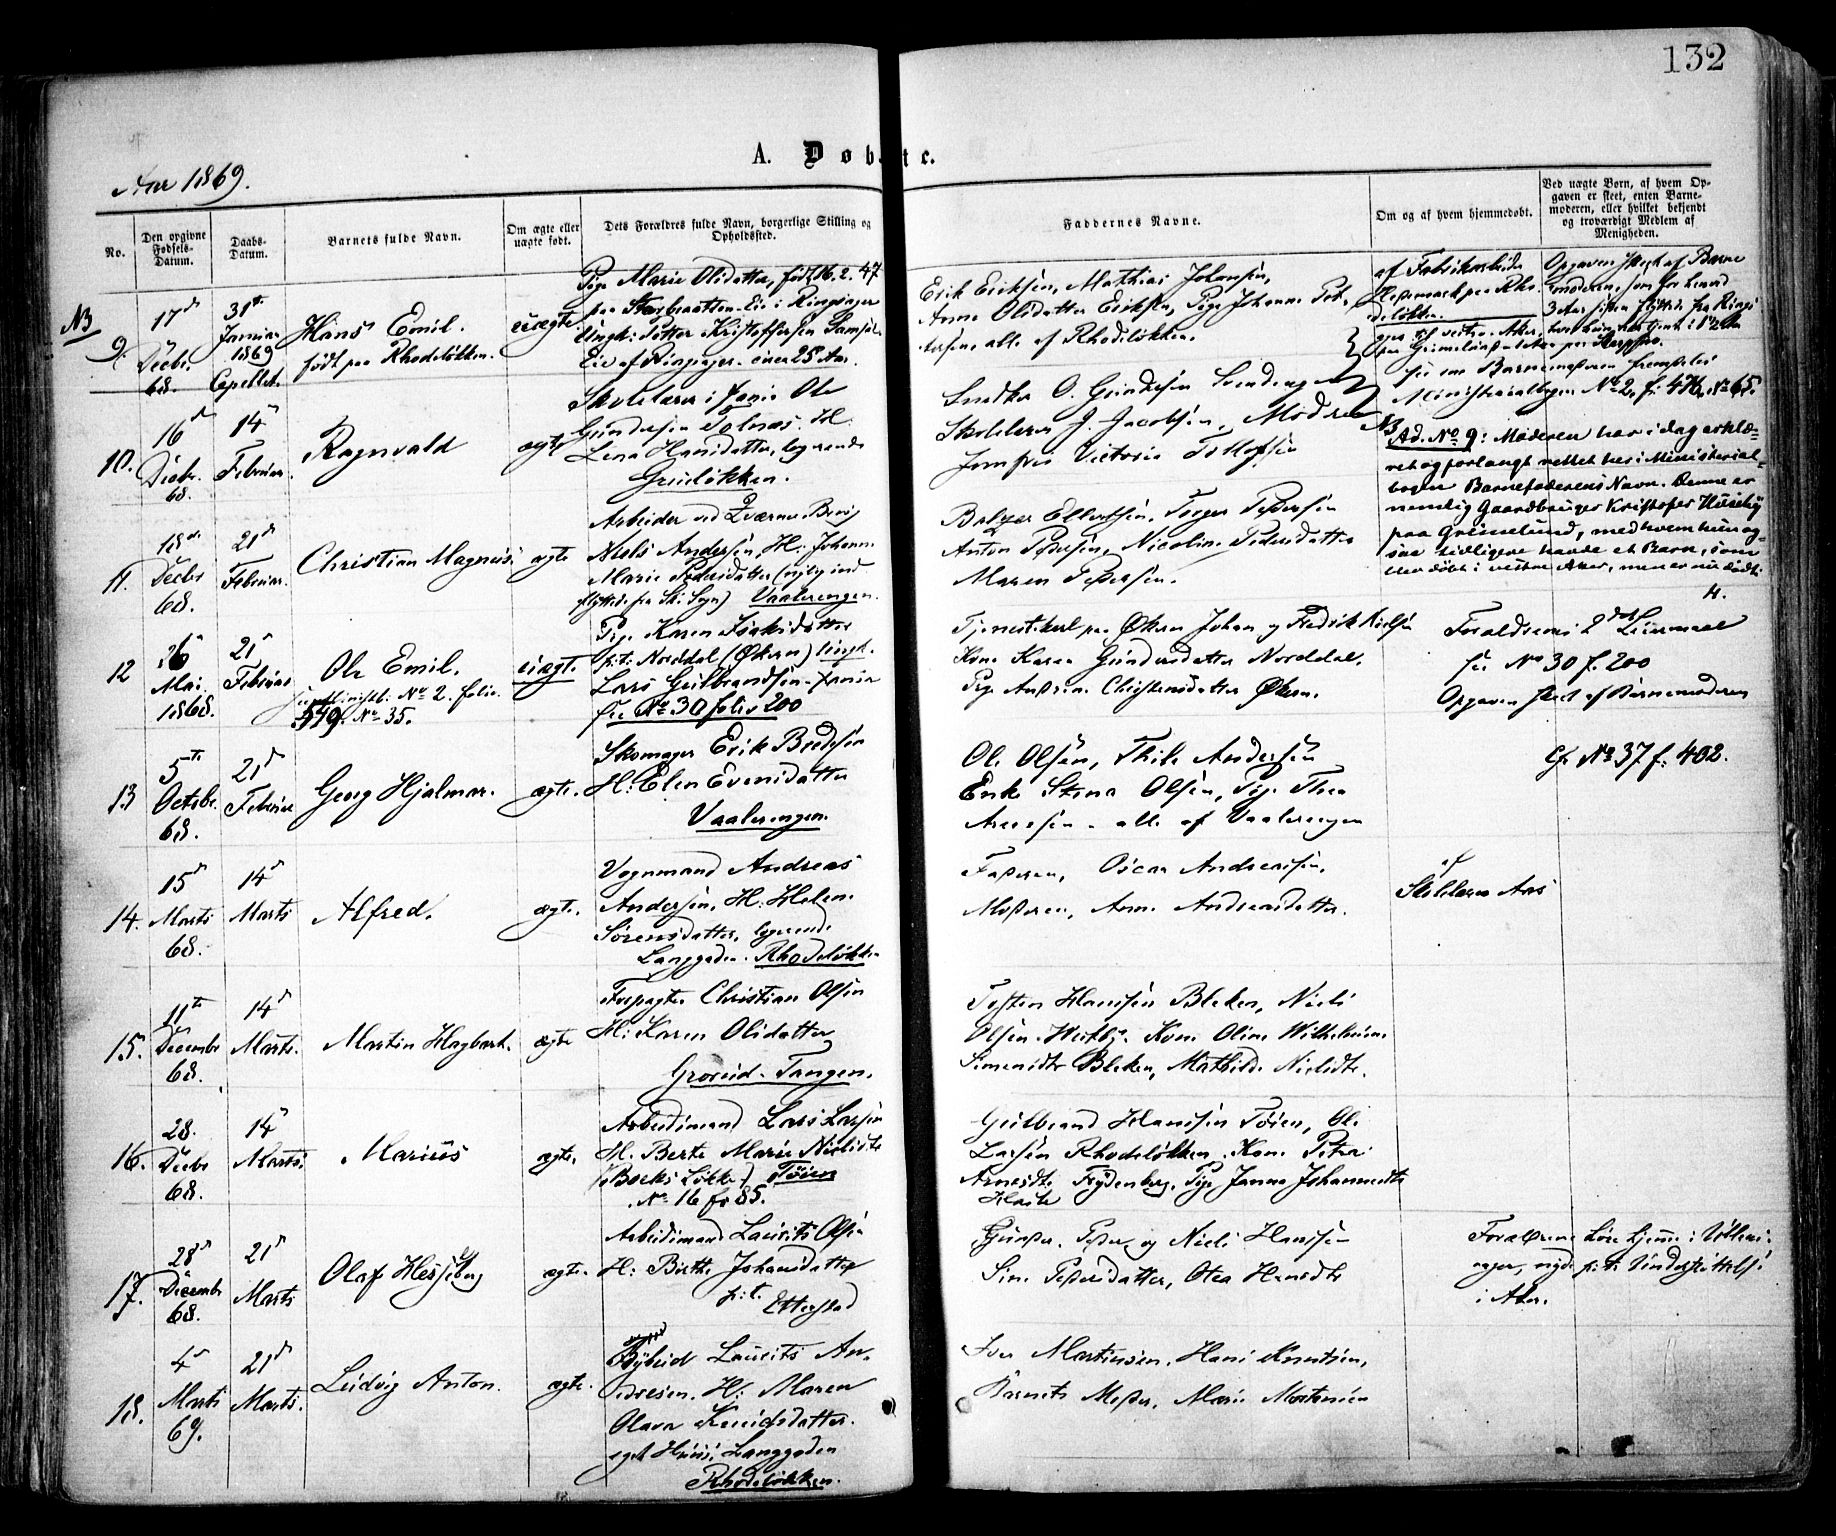 132
A. Døbte.
Aar 1869.
No.
Den opgivne Fødsels-Datum.
Daabs-Datum.
Barnets fulde Navn.
Om ægte eller uægte født.
Dets Forældres fulde Navn, borgerlige Stilling og Opholdssted.
Faddernes Navne.
Om og af hvem hjemmedøbt.
Ved uægte Børn, af hvem Opgaven er skeet, enten Barnemoderen, eller hvilket bekjendt og troværdigt Medlem af Menigheden.
NB
9.
17d
Decbr.
68.
31te
Januar
1869
Capellet.
Hans Emil.
født paa Rhodeløkken.
uægte
Pige Marie Olsdatter, født 16.2.47
Ringsager
Ungk: Kristoffersen
Ringsager. 25 Aar.
Erik Eriksen, Mathias Johansen,
Anne Olsdatter Eriksen, Pige Johanne Pet-
ersen, alle af Rhodeløkken.
af Fabrikarbeider
paa Rho-
deløkken.
Opgaven skeet af Barne
moderen, som for henved
3 Aar siden flyttede fra Rings
ager til vestre Aker,
paa Grimelund
see om Barnemoderen
Ministerialbogen No 2, f. 476, No 65.
10.
16d
Decbr.
68.
14d
Februar.
Ragnvald
ægte
Skolelærer i Ole
Gundersen H:
Lena Hansdatter, logerende
Grünløkken.
Snedker O. Gundersen
Skolelærer J. Jacobsen, Moderen
Jomfru Victoria Tollefsen
NB
Ad. No 9: Moderen har i dag erklæ-
ret og forlangt rettet her i Ministerial-
bogen Barnefaderens Navn. Denne er
nemlig Gaardbruger Kristofer Huseby
paa Grimelund, med hvem hun og-
saa tidligere havde et Barn, som
blev døbt i vestre Aker, men er nu død.
H.
11.
18d
Decbr
68.
21d
Februar.
Christian Magnus.
ægte
Arbeider ved
Niels Andersen, H: Johanne
Marie Pedersdatter (nylig ind
flyttede fra Ski Sogn) Vaalerengen.
Balzer Ellertsen, Torger Pedersen
Anton Pedersen, Nicoline Pedersdatter
Maren Pedersen.
12
26
Mai
1868.
21d
Februar
Ole Emil.
see Ministb. No 2. folio
549. No 35.
uægte
Pige Karen Isaksdatter
p:t: Norddal (Økern) Ungk.
Lars Gulbrandsen
see No 30 folio 200
Tjenestekarl paa Økern Johan og Fredrik Nielsen
Kone Karen Gundersdatter Norddal.
Pige Christensdatter Økern.
Forældrenes 2det Leiermaal
see No 30 f. 200
Opgaven skeet af Barnemoderen
13
5te
Octobr.
68.
21d
Februar
Georg Hjalmar.
ægte.
Skomager Erik Bredesen
H: Elen Evensdatter
Vaalerengen.
Ole Olsen, Thile Andersen
Enke Stina Olsen, Pige Thea
Arnesen - alle af Vaalerengen
Cfr No 37 f. 402.
14.
15d
Marts
68.
14d
Marts
Alfred.
ægte.
Vognmand Andreas
Andersen, H: Helene
Sørensdatter, logerende
Langgaden. Rhodeløkken
Faderen, Oscar Andreassen,
Moderen, Anne Andreasdatter.
af
Skolelærer Aas
15.
11te
Decembr
68.
14d
Marts.
Martin Hagbart.
ægte
Forpagter Christian Olsen
H: Karen Olsdatter
Grorud-Tangen.
Torsten Hansen Bleken, Niels
Olsen Kone Oline Wilhelmine
Simensdtr Bleken, Mathilde Nielsdtr.
16.
28.
Decbr
68.
14d
Marts.
Marius
ægte.
Arbeidsmand Lars Larsen
H. Berte Marie Nielsdtr
(Borks Løkke) Tøien
No 16 fo 85.
Gulbrand Hansen Tøien, Ole
Larsen Rhodeløkken. Kone Petra
Arnesdtr Frydenberg. Pige Janna Johannesdtr
17.
28d
Decembr
68.
21d
Marts
Olaf Hesselberg
ægte.
Arbeidsmand Laurits Olsen
H: Birthe Johansdatter
p:t:
Etterstad
Gunder Peder og Niels Hansen
Sine Pedersdatter, Otea Hansdtr
Forældrene høre hjemme i Ullens-
ager, nyde p:t: Understøttelse
i Aker.
18.
4d
Marts
69.
21d
Marts.
Ludvig Anton.
ægte.
Bybud Laurits An-
dresen. H: Maren
Olava Knudsdatter.
eget Huus, Langgaden
Rhodeløkken.
Iver Martinsen. Hans Knutsen,
Barnets Moder, Marie Mortensen